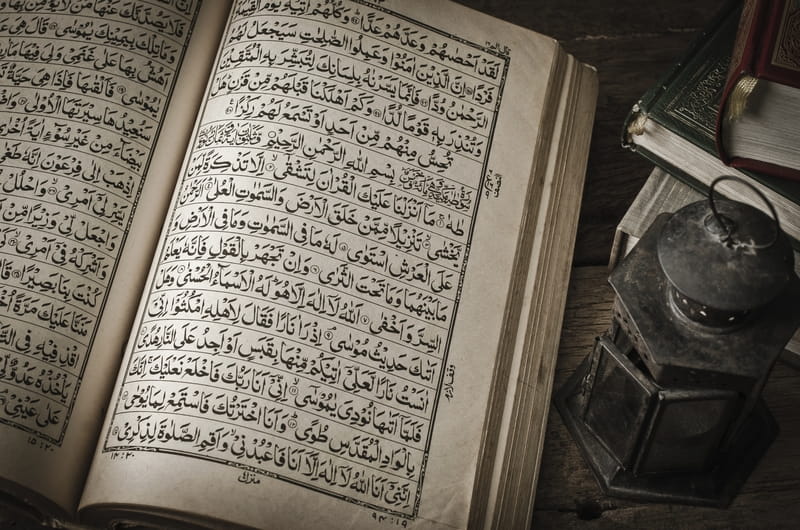 لَقَدْ اَحْصٰىهُمْ وَعَدَّهُمْ عَدًّا ۞ وَكُلُّهُمْ اٰتِيْهِ يَوْمَ الْقِيٰمَةِ
فَرْدًا ۞ اِنَّ الَّذِيْنَ اٰمَنُوْا وَعَمِلُوا الصّٰلِحٰتِ سَيَجْعَلُ لَهُمُ
الرَّحْمٰنُ وُدًّا ۞ فَاِنَّمَا يَسَّرْنٰهُ بِلِسَانِكَ لِتُبَشِّرَ بِهِ الْمُتَّقِيْنَ
وَتُنْذِرَ بِهٖ قَوْمًا لُّدًّا ۞ وَكَمْ اَهْلَكْنَا قَبْلَهُمْ مِّنْ قَرْنٍ هَلْ
تُحِسُّ مِنْهُمْ مِّنْ اَحَدٍ اَوْ تَسْمَعُ لَهُمْ رِكْزًا
بِسْمِ اللهِ الرَّحْمٰنِ الرَّحِيْمِ
طٰهٰ ۞ مَاۤ اَنْزَلْنَا عَلَيْكَ الْقُرْاٰنَ لِتَشْقٰۤى ۞ اِلَّا تَذْكِرَةً لِّمَنْ
يَّخْشٰى ۞ تَنْزِيْلًا مِّمَّنْ خَلَقَ الْاَرْضَ وَالسَّمٰوٰتِ الْعُلٰى ۞ اَلرَّحْمٰنُ
عَلَى الْعَرْشِ اسْتَوٰى ۞ لَهٗ مَا فِى السَّمٰوٰتِ وَمَا فِى الْاَرْضِ وَ
مَا بَيْنَهُمَا وَمَا تَحْتَ الثَّرٰى ۞ وَاِنْ تَجْهَرْ بِالْقَوْلِ فَاِنَّهٗ يَعْلَمُ
السِّرَّ وَاَخْفٰى ۞ اَللهُ لَاۤ اِلٰهَ اِلَّا هُوَ لَهُ الْاَسْمَآءُ الْحُسْنٰى ۞ وَهَلْ
اَتٰىكَ حَدِيْثُ مُوْسٰى ۞ اِذْ رَاٰ نَارًا فَقَالَ لِاَهْلِهِ امْكُثُوْۤا اِنِّىْۤ
اٰنَسْتُ نَارًا لَّعَلِّىْۤ اٰتِيْكُمْ مِّنْهَا بِقَبَسٍ اَوْ اَجِدُ عَلَى النَّارِ هُدًى
فَلَمَّاۤ اَتٰىهَا نُوْدِىَ يٰمُوْسٰى ۞ اِنِّىْۤ اَنَا رَبُّكَ فَاخْلَعْ نَعْلَيْكَ اِنَّكَ
بِالْوَادِ الْمُقَدَّسِ طُوًى ۞ وَاَنَا اخْتَرْتُكَ فَاسْتَمِعْ لِمَا يُوْحٰى
اِنَّنِىْۤ اَنَا اللهُ لَاۤ اِلٰهَ اِلَّاۤ اَنَا فَاعْبُدْنِىْ وَاَقِمِ الصَّلٰوةَ لِذِكْرِىْ
١٤:٢٠
٩٤:١٩
وَمَا تِلْكَ بِيَمِيْنِكَ يٰمُوْسٰى ۞ قَالَ هِىَ
اَهُشُّ بِهَا عَلٰى غَنَمِىْ وَلِىَ فِيْهَا
يٰمُوْسٰى ۞ فَاَلْقٰىهَا فَاِذَا هِىَ حَيَّةٌ
سَنُعِيْدُهَا سِيْرَتَهَا الْاُوْلٰى ۞
بَيْضَآءَ مِنْ غَيْرِ سُوْٓءٍ اٰيَةً اُخْرٰى
اِذْهَبْ اِلٰى فِرْعَوْنَ اِنَّهٗ طَغٰى
يَسِّرْ لِىْۤ اَمْرِىْ ۞ وَاحْلُلْ
وَاجْعَلْ لِّىْ وَزِيْرًا مِّنْ
وَاَشْرِكْهُ فِىْۤ اَمْرِىْ ۞
كُنْتَ بِنَا بَصِيْرًا ۞
مَنَنَّا عَلَيْكَ مَرَّةً
اقْذِفِيْهِ فِى
يَاْخُذْهُ عَدُوٌّ
عَلٰى عَيْنِىْ
١٥:٢٠